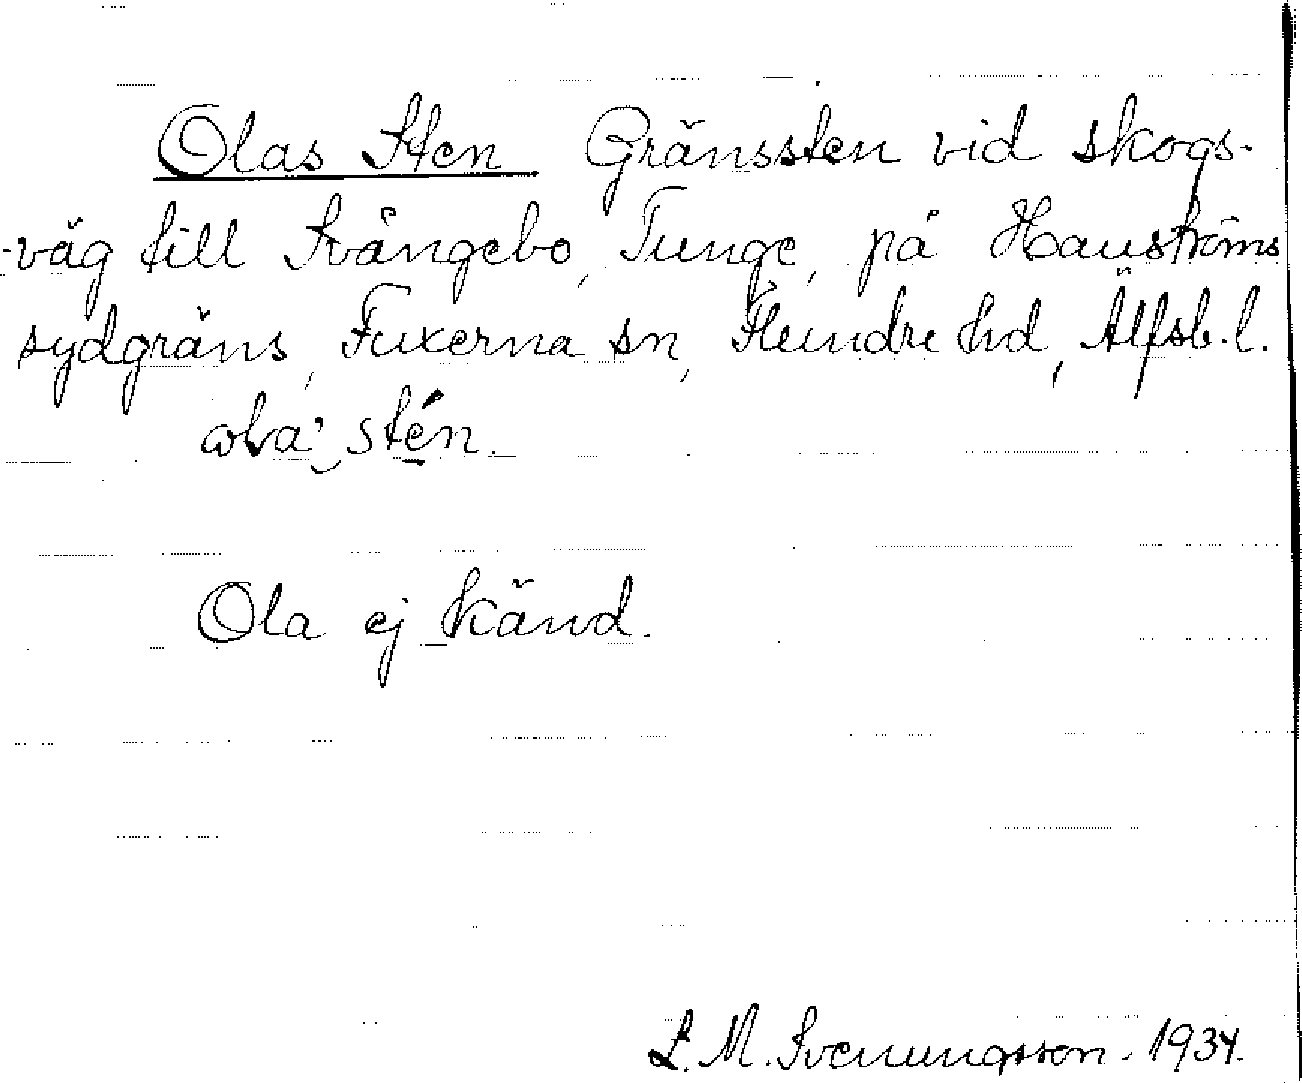 Olas Sten Gränssten vid skogs-
-väg till Svångebo, Tunge, på Hauströms
sydgräns, Fuxerna sn, Flundre hd, Älfsb. l.
stén.
Ola ej känd.
L. M. Svenungsson. 1934.